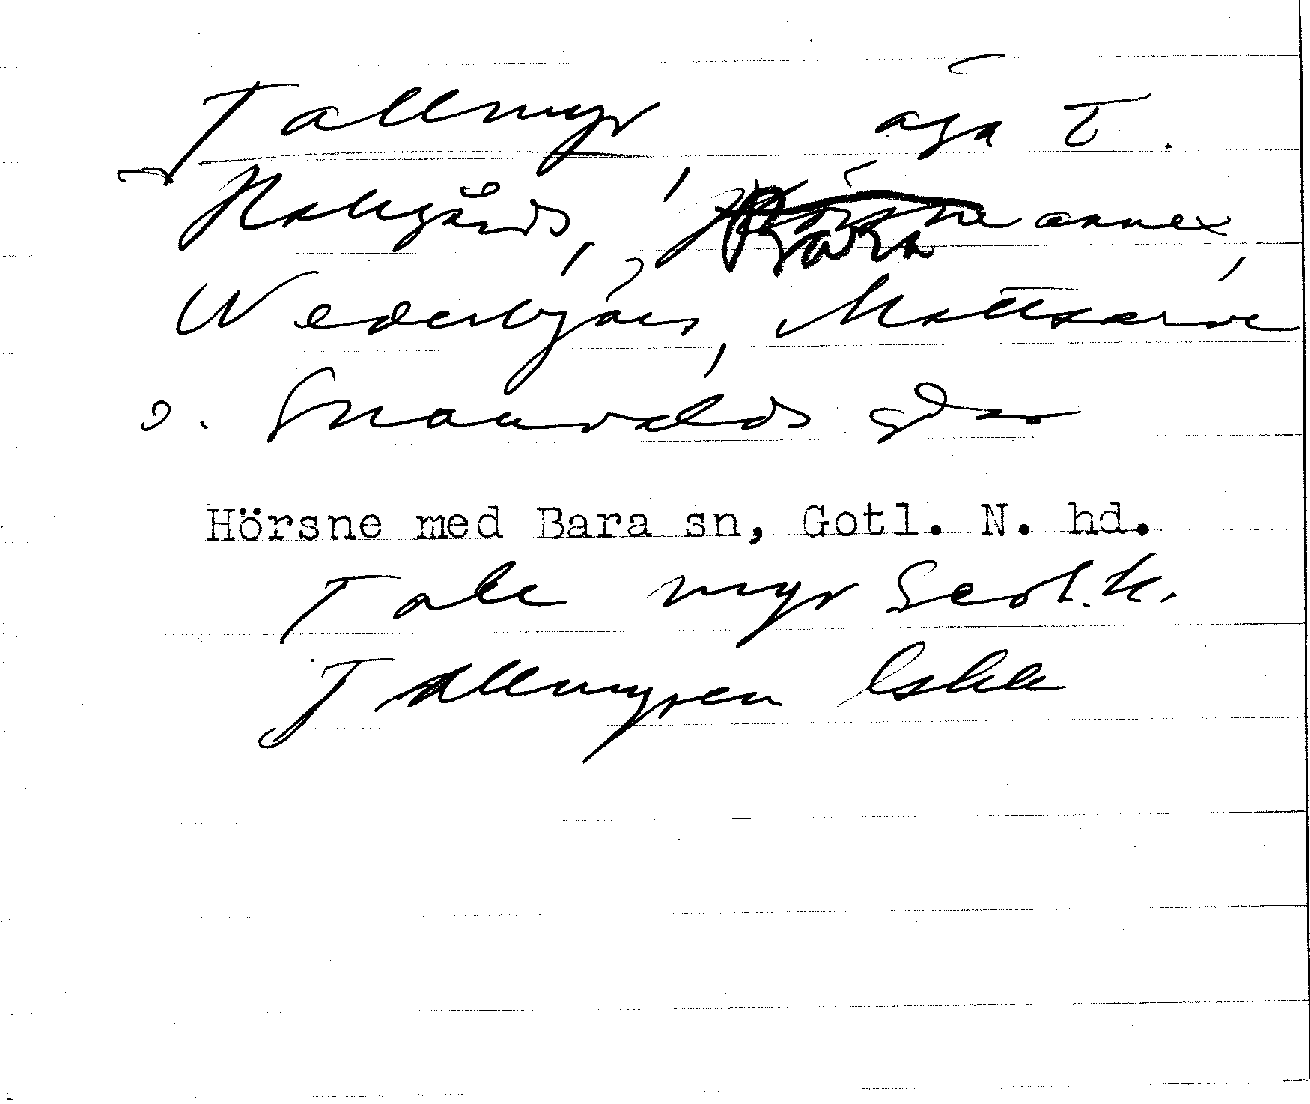 Tallmyr, äga t.
Hallgårds, Bara annex,
Wederbjärs, Mattsarve
o. Snauvalds gdar
Hörsne med Bara sn, Gotl. N. hd.
Tall myr Seol.k.
Tallmyren Eskk